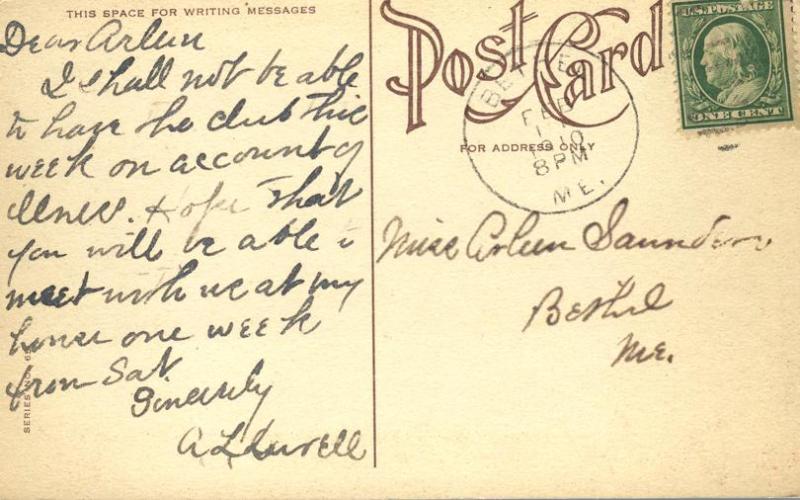 THIS SPACE FOR WRITING MESSAGES
Dear Arleen
I shall not be able
to have the club this
week on account of
illness. Hope that
you will be able to
meet with us at my
house one week
from Sat
Sincerely
SERIES NO.
Post Card
FOR ADDRESS ONLY
BETHEL
FEB
1910
8 PM
ME.
U.S. POSTAGE
ONE CENT
Miss Arleen Saunders
Bethel
Me.